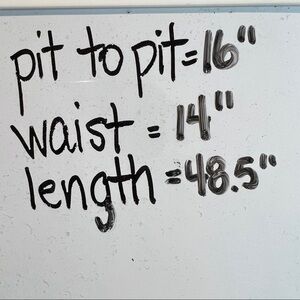 pit to pit=16"
waist = 14"
length =48.5"